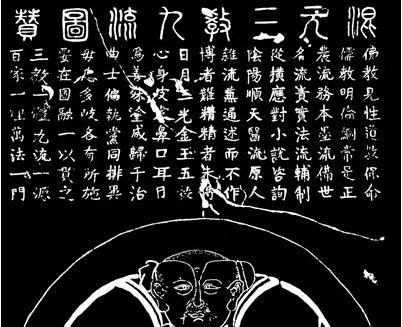 混元三教九流圖贊
佛教見性道教保命
儒教明倫綱常是正
農流務本墨流備世
名流責實法流輔制
從橫應對小說咨詢
陰陽順天醫流原人
雜流兼通述而不作
博者難精精者未
日月三光金玉五穀
心身皮膚鼻口耳目
為善殊咸歸于治
曲士偏執黨同排異
毋患多岐各有所施
要在圓融一以貫之
三教一體九流一源
百家一理萬法一門